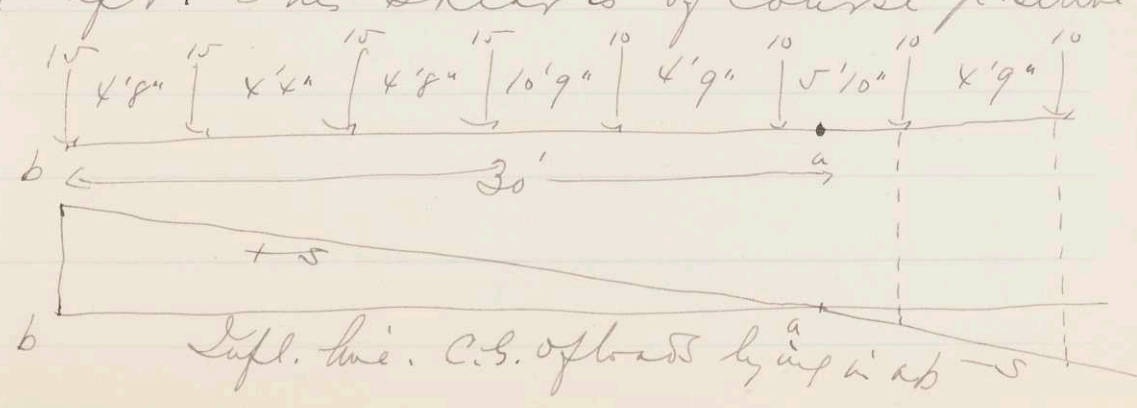 This shear is of course positive
15 15 15 15 10 10 10 10
4'8" 4'4" 4'8" 10'9" 4'9" 5'10" 4'9"
b 30' a
+ S
b a
Infl. line. C.G. of loads lying in ab - S